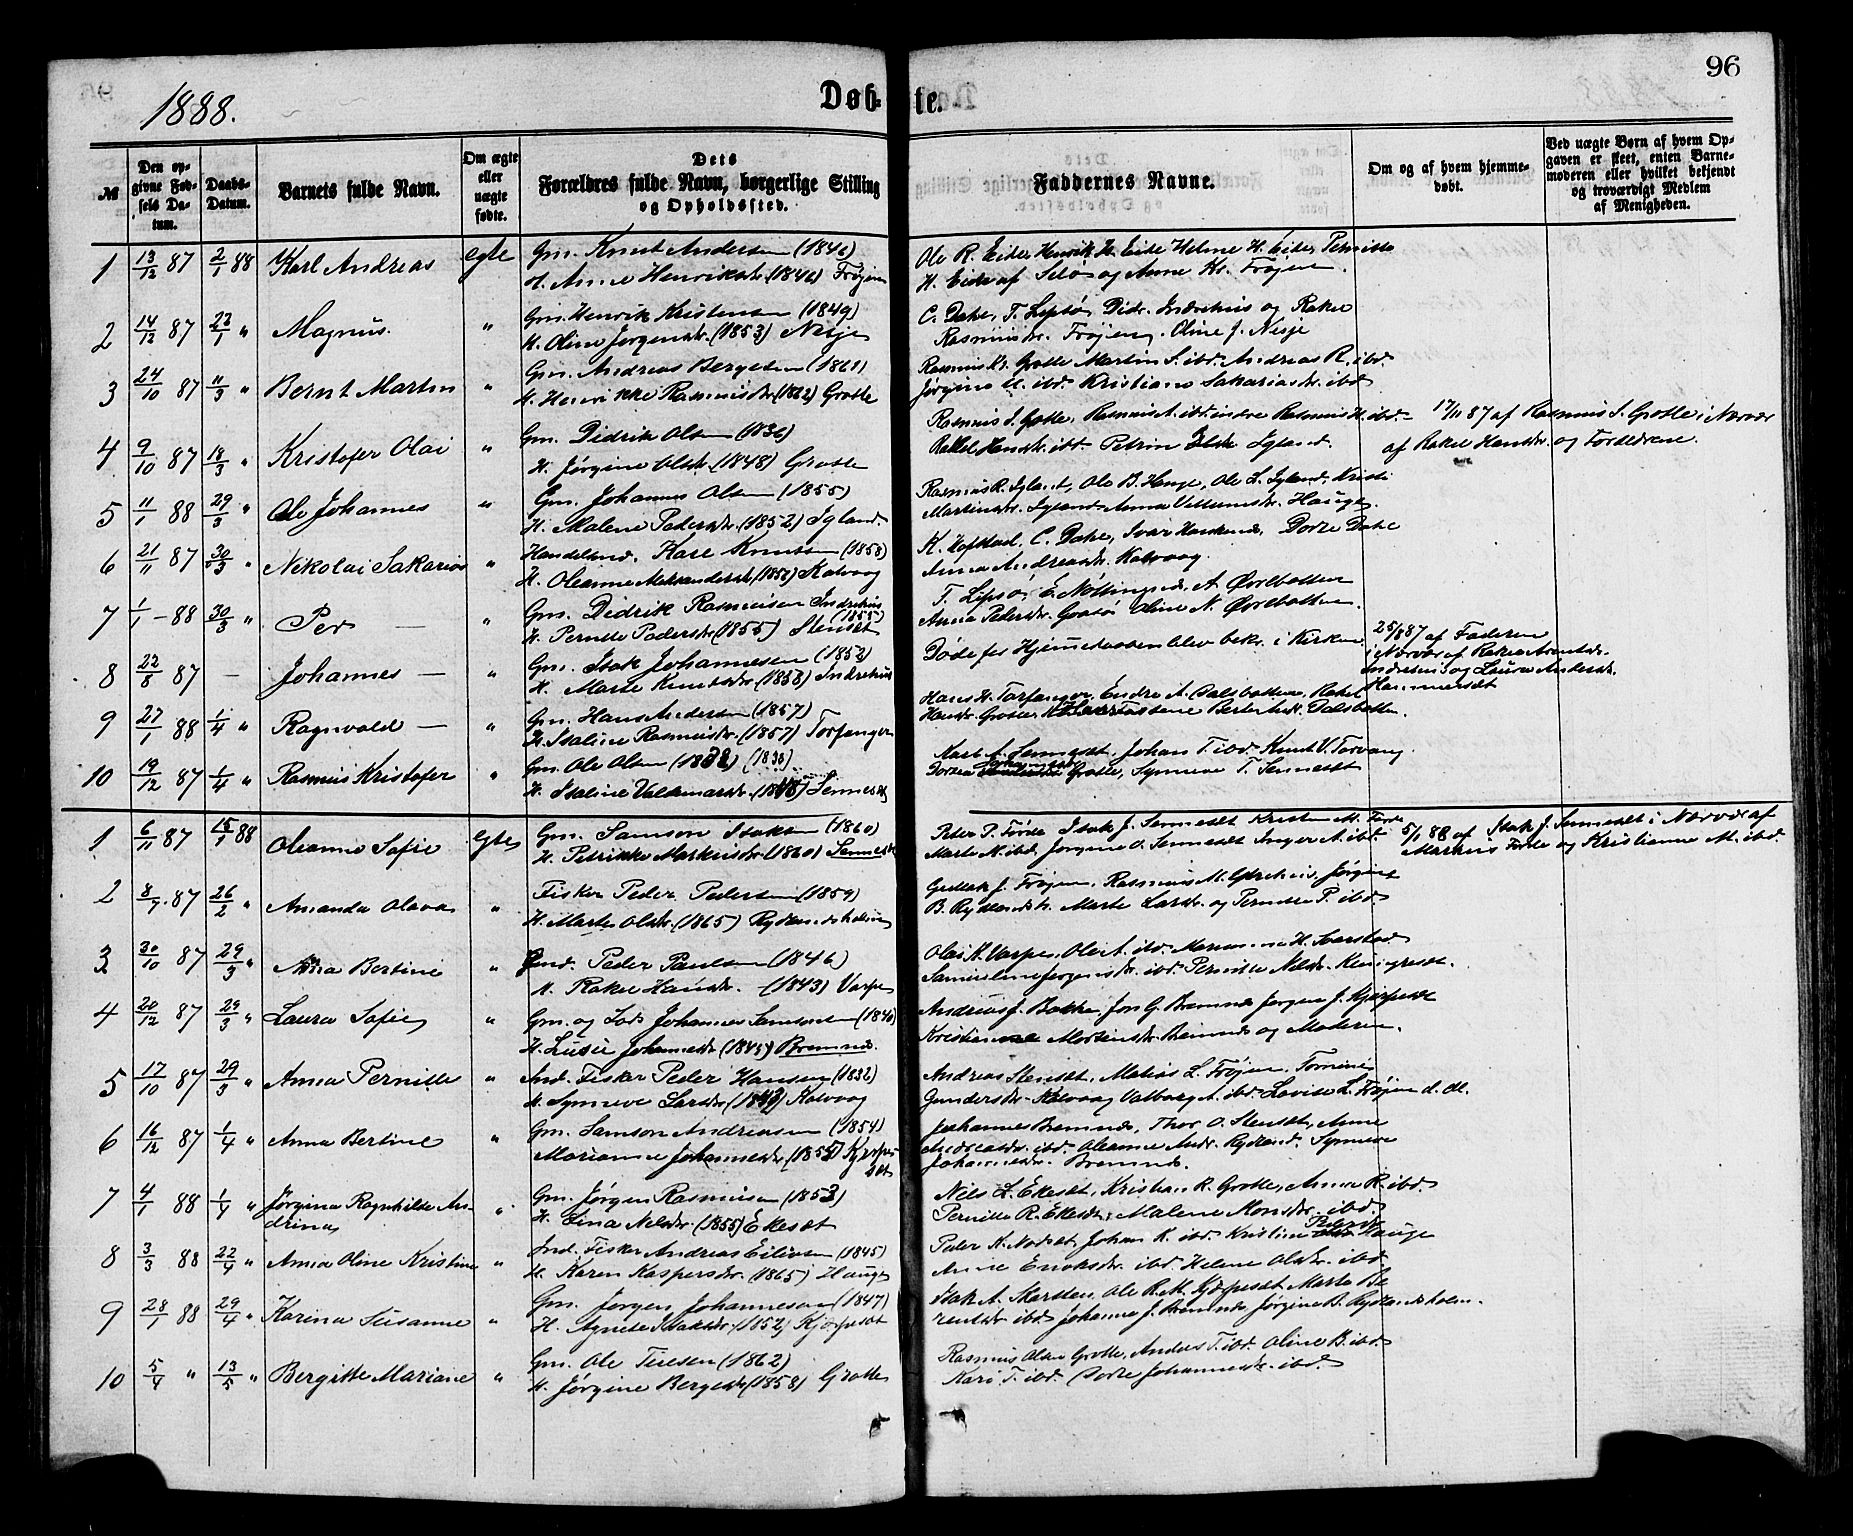 96
1888.
Døbte.
№
Den opgivne Fødsels Datum.
Daabs-Datum.
Barnets fulde Navn.
Om ægte eller uægte fødte.
Dets Forældres fulde Navn, borgerlige Stilling og Opholdssted.
Faddernes Navne.
Om og af hvem hjemmedøbt.
Ved uægte Børn af hvem Opgaven er skeet, enten Barnemoderen eller hvilket bekjendt og troværdigt Medlem af Menigheden.
1 13/12 87 2/1 88 Karl Andreas egte Gm. Knut Andersen (1846)
H. Anne Henriksdr. (1846) Frøjen
Ole R. Eide, Henrik H. Eide Helene H. Eide, Pernille
H. Eide af Selø og Anne Kr. Frøjen.
2 14/12 87 22/1 " Magnus. " Gm. Henrik Kristensen (1849)
H. Oline Jørgensdr. (1853) Nesje
C. Dahe, T. Lepsø, Didr. Indrehus og Rakel
Rasmusdr. Frøjen, Oline J. Nesje
3 24/10 87 11/3 " Bernt Martin " Gm. Andreas Bergesen (1861)
H. Henrikke Rasmusdr. (1862) Grotle
Rasmus Kr. Grotle Martin S. ibd. Andreas R. ibd.
Jørgine ibd. Kristiane Sakariasdr. ibd
4 9/10 87 18/3 " Kristofer Olai " Gm. Didrik Olsen (1836)
H. Jørgine Olsdr. (1848) Grotle
Rasmus S. Grotle, Rasmus A. ibd. Rasmus H. ibd.
Rakel Hansdr. ibd. Petrine Igland.
17/11 87 af Rasmus S. Grotle i Nærvær
af Rakel Hansdr. og Forældrene.
5 11/1 88 29/3 " Ole Johannes " Gm. Johannes Olsen (1855)
H. Malene Pedersdr. (1852) Igland.
Rasmus R. Igland, Ole B. Hauge, Ole L. Igland, Kristi
Martinsdr. Igland Anna Villumsdr. Hauge.
6 21/11 87 30/3 " Nikolai Sakarias " Handelsmd. Karl Knutsen (1858)
H. Oleanne Aleksandersdr. (1852) Kalvaag
K. Hofstad, C. Dahe, Ivar Dorte Dahe
Anna Andreasdr. Kalvaag.
7 1/1 - 88 30/3 " Per — " Gm. Didrik Rasmusen Indrehus
(1855)
H. Pernille Pedersdr. (1855) Stensæt
T. Lepsø, E. Nøttingnes, A. Øvrebotten
Anna Pedersdr. Oline N. Øvrebotten.
8 22/8 87 — Johannes — " Gm. Isak Johannesen (1852)
H. Marte Knutsdr. (1858) Indrehus
Døde før Hjemmedaaben blev bekr. i Kirken
25/8 87 af Faderen
i Nærvær af Rakel
Indrehus og Laura Andersdr.
Hammersæt
9 27/1 88 1/4 " Ragnvald — " Gm. Hans Andersen (1857)
H. Staline Rasmusdr. (1857) Torfanger
Hans H. Torfanger, Endre A. Dalsbotten, Rakel
Hansdr. Grotle, Dalsbotten.
10 19/12 87 1/4 " Rasmus Kristofer " Gm. Ole Olsen (1838) (1838)
H. Staline Valdemarsdr. Sennesæt
Karl A. Sennesæt, Johan T. ibd. Knut V. Torvang
Dortea Grotle, Synneve T. Sennesæt
1 6/11 87 15/1 88 Oleanne Sofie egte Gm. Samson Isaksen (1860)
H. Petrikke Markusdr. (1860) Sennesæt
Peder P. Førde Isak J. Sennesæt Kristen M. Førde
Marte M. ibd. Jørgine O. Sennesæt Inger A. ibd.
5/1 88 af Isak J. Sennesæt i Nærvær af
Markus Førde og Kristianne M. ibd.
2 8/9 87 26/2 " Amanda Olava " Fisker Peder Pedersen (1859)
H. Marte Olsdr. (1865) Rydlandsholm
J. Frøjen, Rasmus M. Jørgine
B. Rydlandsh. Marte Larsdr. og Pernille P. ibd
3 30/10 87 29/3 " Anna Bertine " Ind. Peder Paulsen (1846)
H. Rakel Hansdr. (1843) Varpe
Olai K. Varpe, Ole A. ibd. H. Sverstad
Samueline Jørgensdr. ibd. Pernille Nilsdr.
4 20/12 87 29/3 " Laura Sofie " Gm. og Lods Johannes Samsonsen (1846)
H. Lusie Johannesdr. (1845) Bremnes.
Andreas J. Bakke, Jon G. Bremnes Jørgen J. Kjerpesæt
Kristianne Mortensdr. Bremnes og Moderen.
5 17/10 87 29/3 " Anna Pernille " Ind. Fisker Peder Hansen (1832)
H. Synneve Larsdr. (1843) Kalvaag
Andreas Stensæt, Matias L. Frøjen, Tomine
Gundersdr. Kalvaag Valborg A. ibd. Lovise L. Frøjen d. æl.
6 16/12 87 1/4 " Anna Bertine " Gm. Samson Andreasen (1854)
Marianne Johannesdr. (1855) Kjerpe-
sæt
Johannes Bremnes, Thor O. Stensæt, Anne
Andreasdr. ibd. Oleanne Andr. Rydland. Synneve
Johannesdr. Bremnes.
7 4/1 88 1/4 " Jørgina Ragnhilde An-
drina " Gm. Jørgen Rasmusen (1853)
H. Sina Nilsdr. (1855) Ekesæt
Nils L. Ekesæt, Kristian R. Grotle, Anne R. ibd.
Pernille R. Ekesæt, Malene Monsdr. ibd.
8 3/3 88 22/4 " Anna Oline Kristine " Ind. Fisker Andreas Eilivsen (1845)
H. Karen Kaspersdr. (1865) Hauge
Peder K. Nodset, Johan K. ibd. Kristine Pedersdr. Hauge
Anne Eriksdr. ibd. Helene Olsdr. ibd.
9 28/1 88 29/4 " Karina Susanne " Gm. Jørgen Johannesen (1847)
H. Agnete Isaksdr. (1852) Kjerpesæt
Isak A. Skorsten, Ole R. Kjerpesæt Marta Be
rentsdr. ibd. Johanne J. Bremnes Jørgine B. Rydlandsholm.
10 5/4 " 13/5 " Bergitte Mariane " Gm. Ole Tiresen (1862)
H. Jørgine Bergesdr. (1858) Grotle
Rasmus Olsen Grotle, Anders T. ibd. Oline B. ibd.
Kari T. ibd. Dorte Johannesdr. ibd.